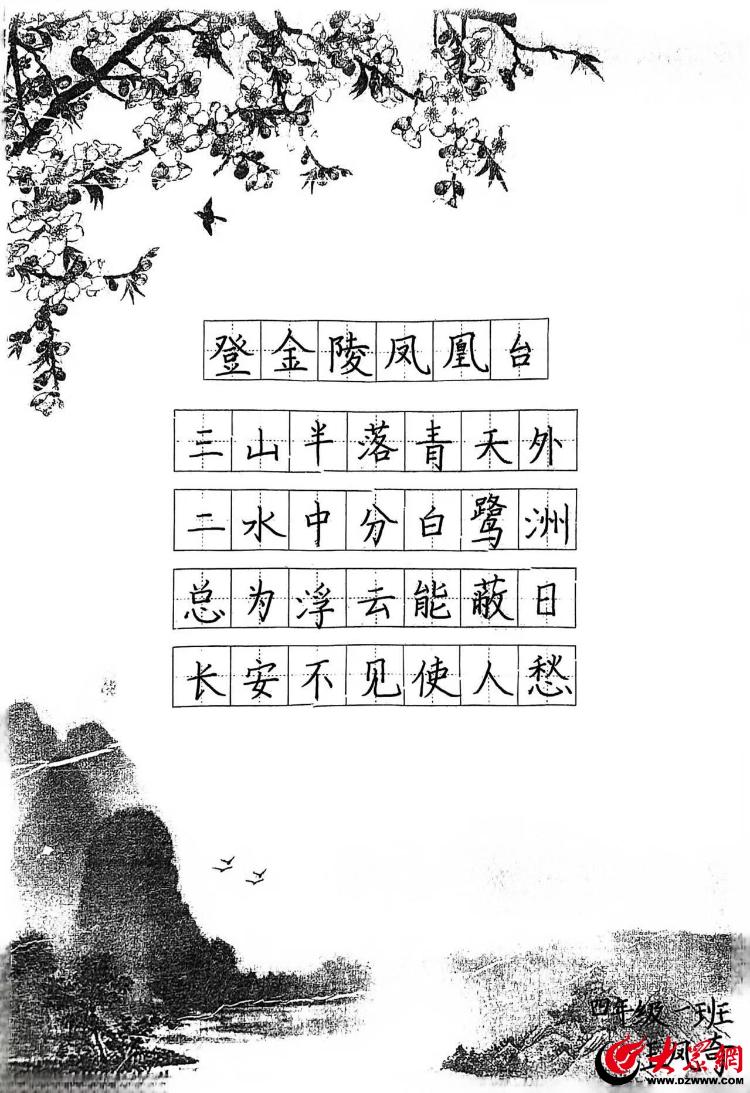 登金陵凤凰台
三山半落青天外
二水中分白鹭洲
总为浮云能蔽日
长安不见使人愁
四年级一班
大眾網
WWW.DZWWW.COM